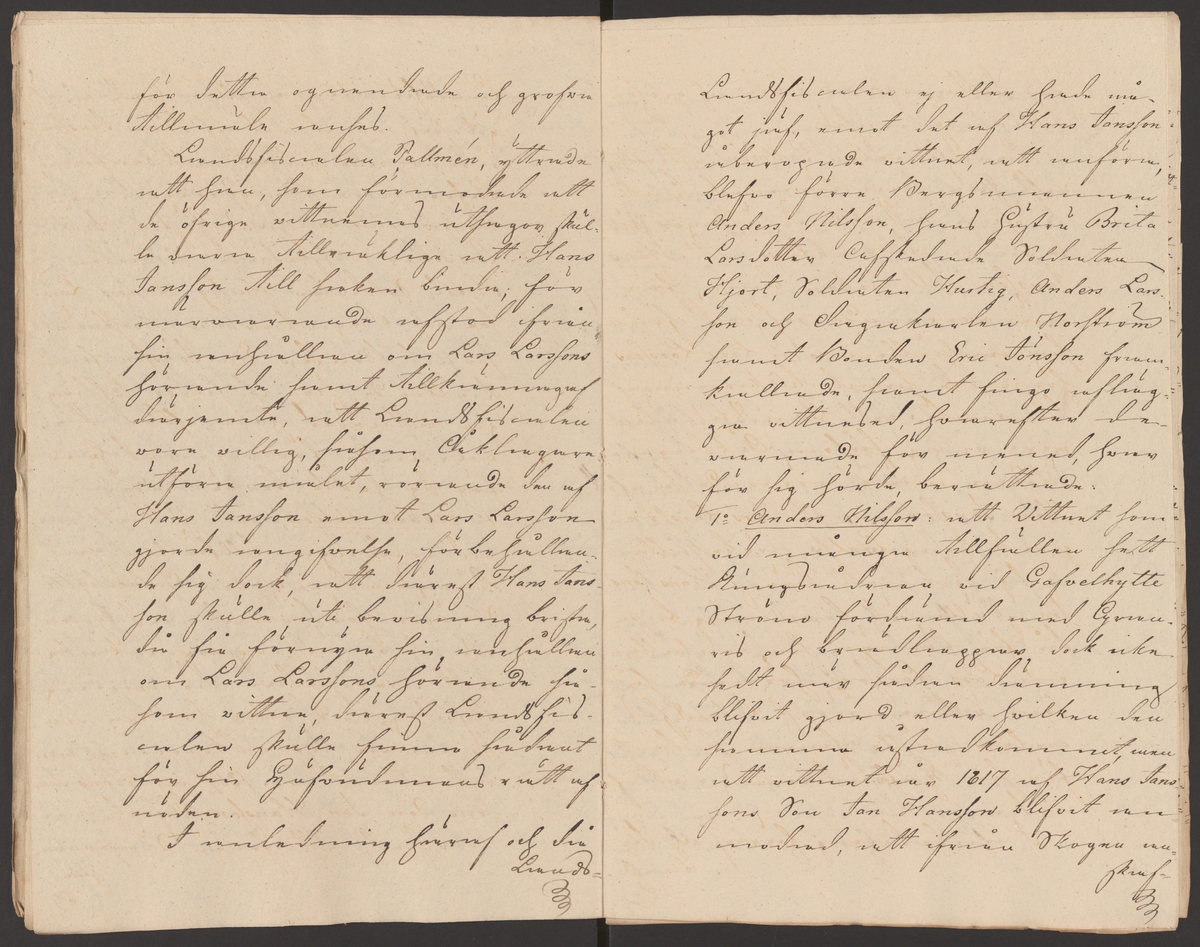 för detta ogrundade och grofva
tillmäle anses.
Landsfiscalen Pallmén, yttrade
att han, som förmodade att
de öfrige vittnernas utsagor skul-
le vara tillräklige att Hans
Jansson till saken binda; för
närvarande afstod ifrån
sin anhållan om Lars Larssons
hörande samt tillkännagaf
därjemte, att Landsfiscalen
vore villig, såsom Åklagare
utföra målet, rörande den af
Hans Jansson emot Lars Larsson
gjorde angifvelse, förbehållan-
de sig dock, att därest Hans Jans
son skulle uti bevisning brista,
då få förnya sin anhållan
om Lars Larssons hörande så-
som vittne, därest Landsfis-
calen skulle finna sådant
för sin Hufvudmans rätt af
nöden.
I anledning häraf och då
Lands-
Landsfiscalen ej eller hade nå-
got jäf, emot det af Hans Jansson
åberopade vittnet, att anföra,
blefvo förre Bergsmannen
Anders Nilsson, hans Hustru Brita
Larsdotter Cafskedade Soldaten
Hjort, Soldaten Hurtig, Anders Lars-
son och Sågakarlen Norström
samt Bonden Eric Jönsson fram
kallade, samt fingo afläg-
ga vittnesed, hvarefter de
varnade för mened, hvar
för sig hörde, berättade:
1o Anders Nilsson: att Vittnet som
vid många tillfällen sett
Kungsådran vid Gafvelhytte
Ström fördämd med Gran-
ris och brädlappar dock icke
sedt när sådan dämning
blifvit gjord eller hvilken den
samma åstadkommit, men
att vittnet år 1817 af Hans Jans
sons Son Jan Hansson blifvit an
modad, att ifrån Skogen an-
skaf-